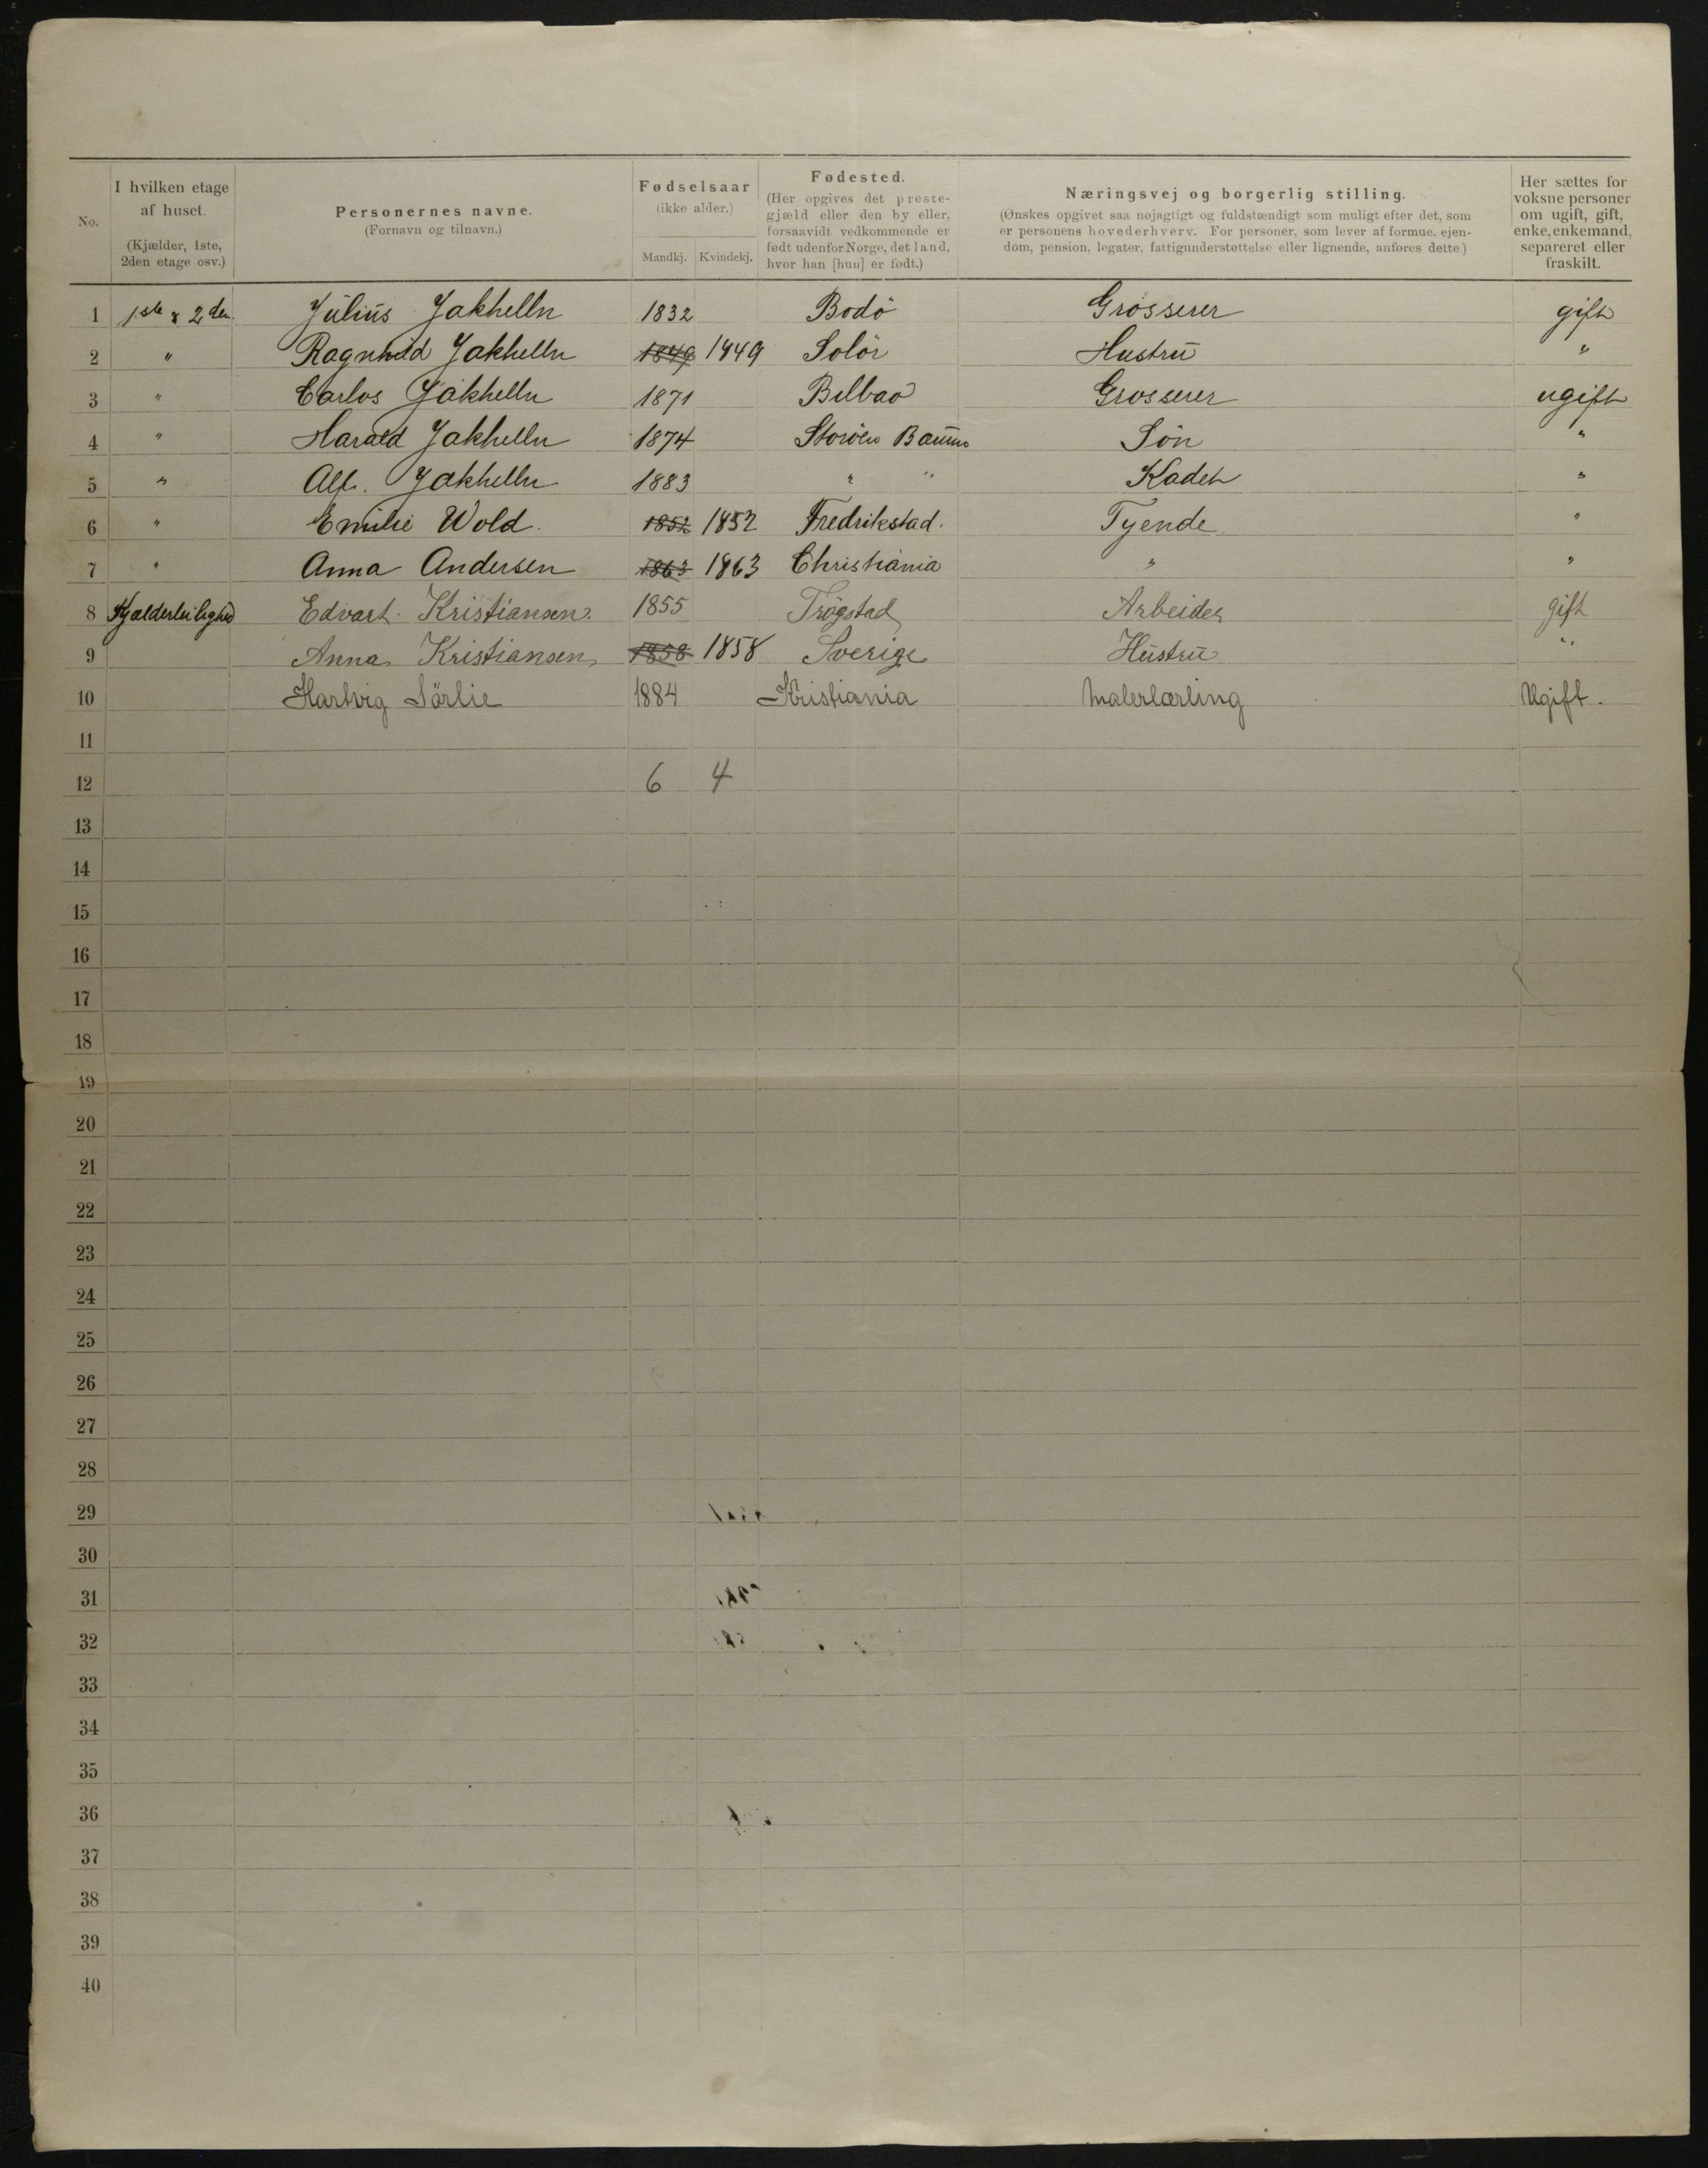 No. | I hvilken etage af huset. (Kjælder, 1ste, 2den etage osv.) | Personernes navne. (Fornavn og tilnavn.) | Fødselsaar (ikke alder.) Mandkj. | Kvindekj. | Fødested. (Her opgives det prestegjæld eller den by eller, forsaavidt vedkommende er født udenfor Norge, det land, hvor han [hun] er født.) | Næringsvej og borgerlig stilling. (Ønskes opgivet saa nøjagtigt og fuldstændigt som muligt efter det, som er personens hovederhverv. For personer, som lever af formue, ejendom, pension, legater, fattigunderstøttelse eller lignende, anføres dette.) | Her sættes for voksne personer om ugift, gift, enke, enkemand, separeret eller fraskilt.
1 1ste & 2den Julius Jakhelln 1832 Bodö Grosserer gift
2 " Ragnhild Jakhelln 1849 1849 Solör Hustru "
3 " Carlos Jakhelln 1871 Bilbao Grosserer ugift
4 " Harald Jakhelln 1874 Storöen Bærum Sön "
5 " Alf. Jakhelln 1883 " " Kadet "
6 " Emilie Wold. 1852 1852 Fredrikstad. Tyende "
7 " Anna Andersen 1863 1863 Christiania " "
8 Kjælderleilighed Edvart Kristiansen. 1855 Trögstad Arbeider gift
9 Anna Kristiansen 1858 1858 Sverige Hustru "
10 Hartvig Sörlie 1884 Kristiania Malerlærling Ugift.
11
12 6 4
13
14
15
16
17
18
19
20
21
22
23
24
25
26
27
28
29
30
31
32
33
34
35
36
37
38
39
40